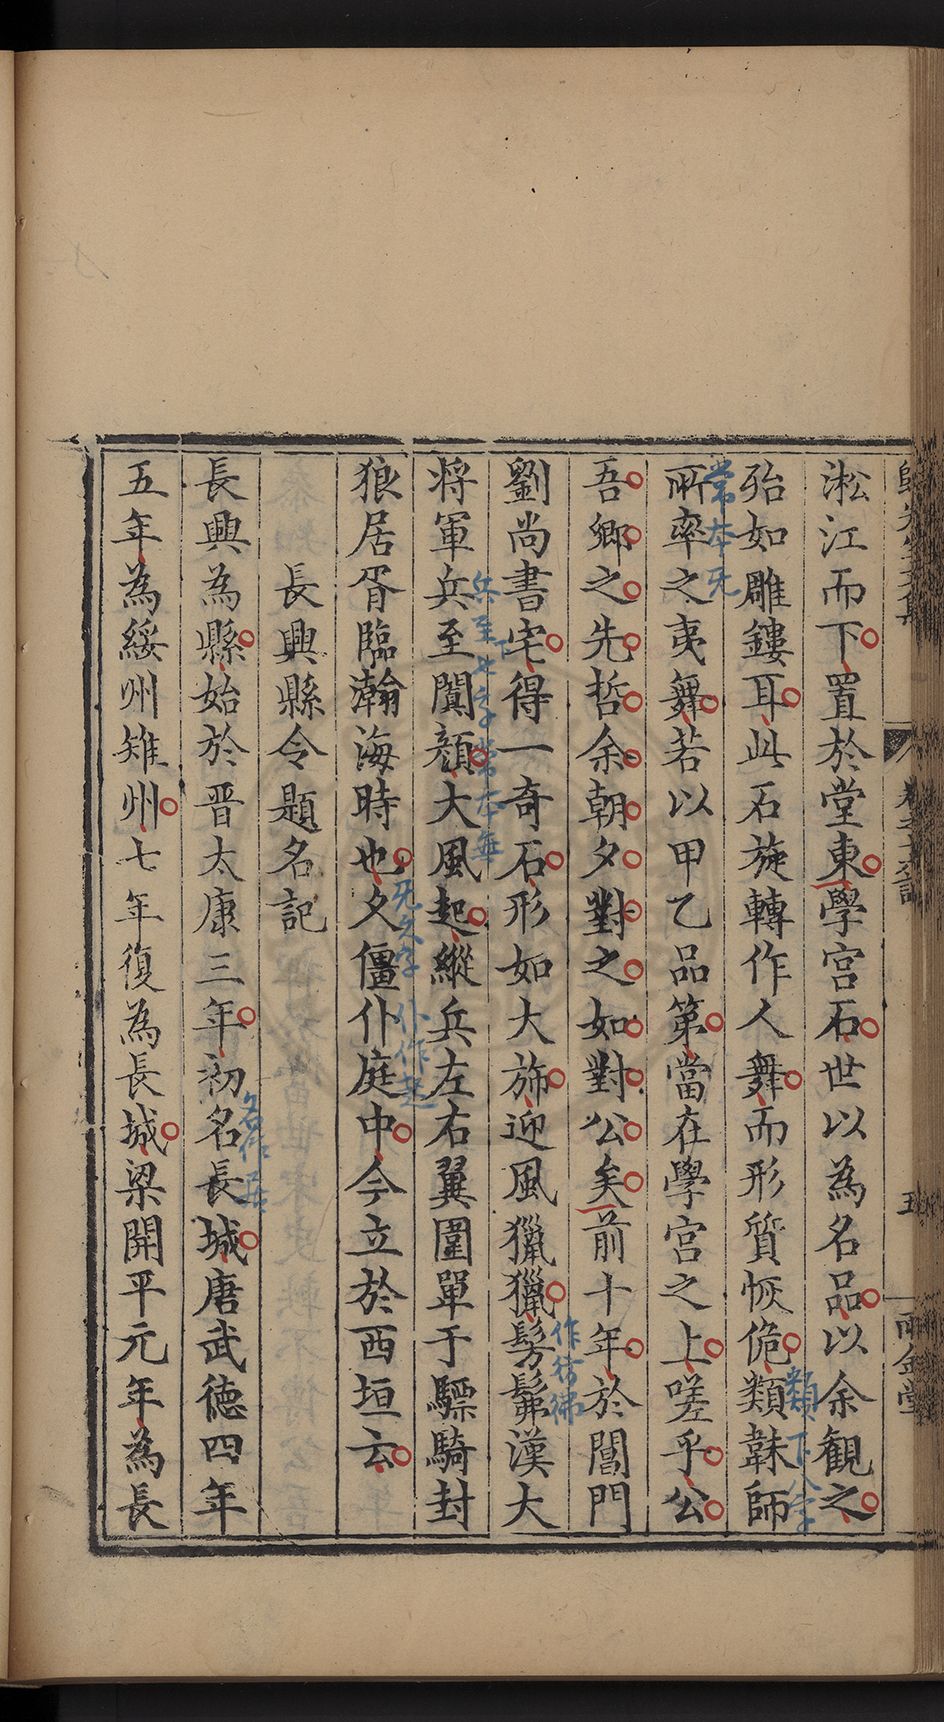 淞江而下置於堂東學宮石世以為名品以余觀之
殆如雕鏤耳此石旋轉作人舞而形質恢佹類韎師
類下八字
所率之夷舞若以甲乙品第當在學宮之上嗟乎公
常本无
吾鄉之先哲余朝夕對之如對公矣前十年於閶門
劉尚書宅得一奇石形如大旆迎風獵獵髣髴漢大
作彷彿
將軍兵至闐顏大風起縱兵左右翼圍單于驃騎封
兵至下七字常本無
狼居胥臨瀚海時也久僵仆庭中今立於西垣云
无久字
仆作起
長興縣令題名記
長興為縣始於晋太康三年初名長城唐武德四年
名作為
五年為綏州雉州七年復為長城梁開平元年為長
五
兩金堂